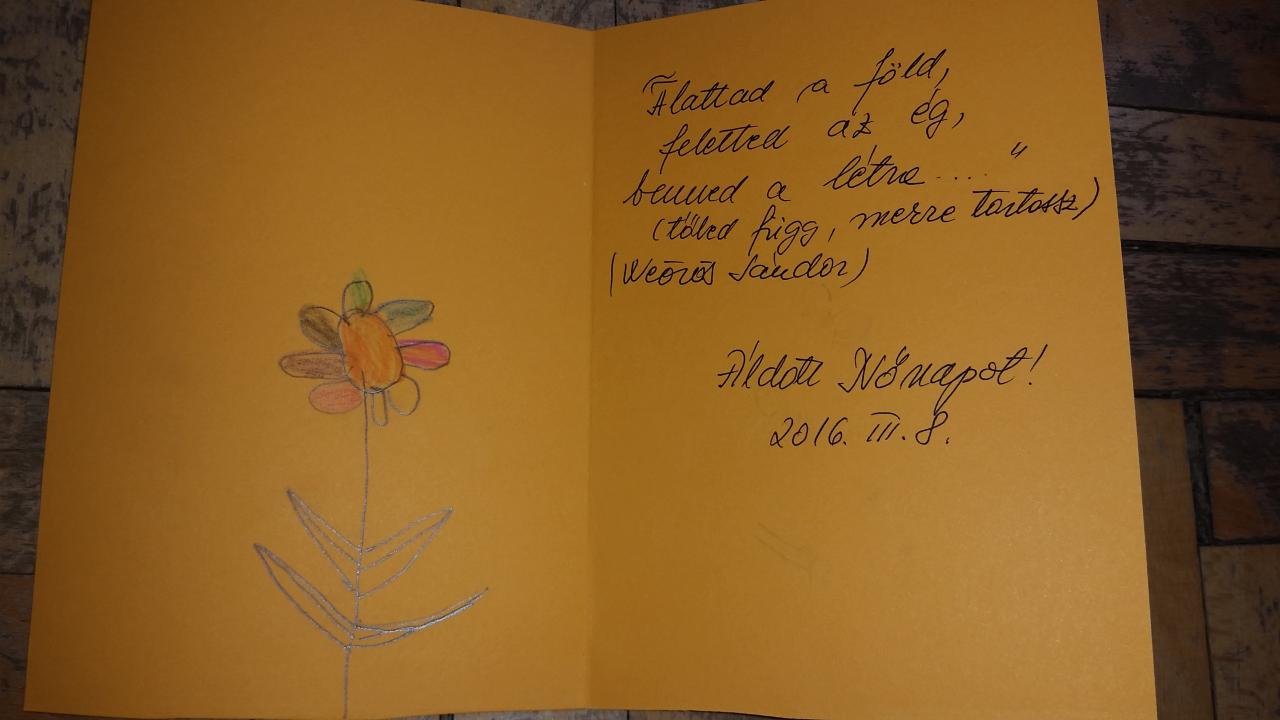 Alattad a föld,
feletted az ég,
benned a létra .... "
(tőled függ, merre tartassz)
(Weörös Sándor)
Áldott Nőnapot!
2016. III. 8.